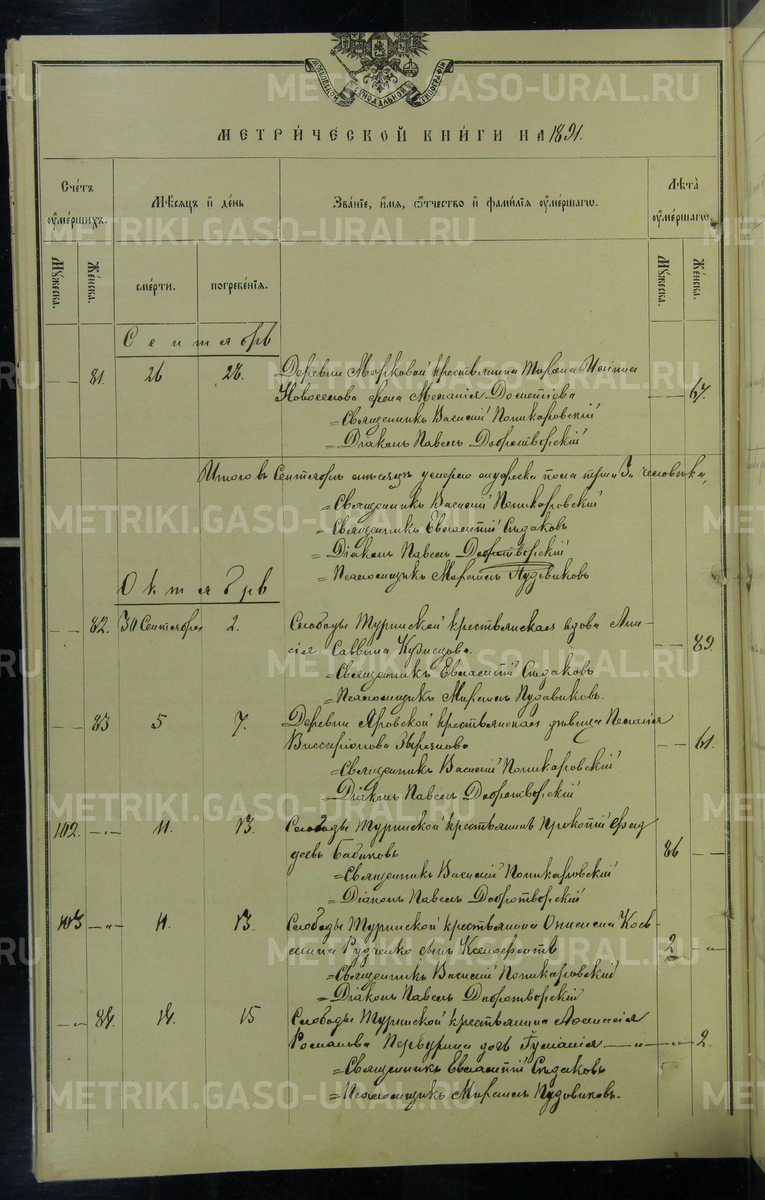 МОСКОВСКОЙ СѴНОДАЛЬНОЙ ТИПОГРАФІИ
МЕТРИ́ЧЕСКОЙ КНИ́ГИ НА 1891.
Сче́тъ ѹме́ршихъ.
Мѣ́сяцъ и де́нь
Зва́ніе, и́мя, ѻ́тчество и фами́лія ѹме́ршагѡ.
Лѣта̀ ѹме́ршагѡ.
Мꙋ́жеска. Же́нска. сме́рти. погребе́нія. Мꙋ́жеска. Же́нска.
Сентябрь
81. 26 28. Деревни Марковой крестьянина
Новоселова жена Меланія Дометіева 67.
=Священникъ Василій Поликаровскій
=Діаконъ Павелъ Добротворскій
Итого въ Сентябрѣ мѣсяцѣ умерло мужеска пола три 3 человѣка,
=Священникъ Василій Поликаровскій
=Священникъ Евгамптій Сѣдаковъ
=Діаконъ Павелъ Добротворскій
=Псаломщикъ Пудовиковъ
Октябрь
82. 30 Сентября 2. Слободы Туринской крестьянская вдова Ани-
сія Саввина Кузнецова. 89.
=Священникъ Сѣдаковъ
=Псаломщикъ Пудовиковъ.
83 5 7. Деревни Яровской крестьянская дѣвица Пелагія
Виссаріонова 61.
=Священникъ Василій Поликаровскій
=Діаконъ Павелъ Добротворскій
102. 11. 13. Слободы Туринской крестьянинъ Прокопій Фад
деевъ Бабиковъ 86
=Священникъ Василій Поликаровскій
=Діаконъ Павелъ Добротворскій
103 11. 13. Слободы Туринской крестьянина Онисима Кось-
мина Рудченко сынъ Ксенофонтъ 2
=Священникъ Василій Поликаровскій
=Діаконъ Павелъ Добротворскій
84. 14. 15 Слободы Туринской крестьянина Афанасія
Романова Первурина дочь Іуліанія 2.
=Священникъ Сѣдаковъ
=Псаломщикъ Пудовиковъ.
METRIKI.GASO-URAL.RU